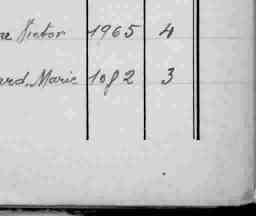 re Victor 1965 4
ard, Marie 1082 3